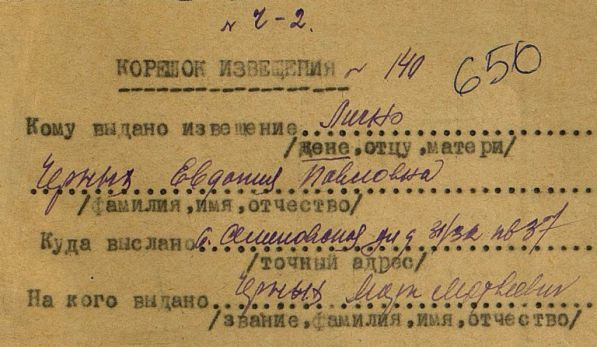 № 4-2.
КОРЕШОК ИЗВЕЩЕНИЯ № 140 650
Кому выдано извещение Лично
/жене,отцу,матери/
Черных Евдокия Павловна
/фамилия,имя,отчество/
Куда выслано Семеновская 31/32 кв 37
/точный адрес/
На кого выдано Черных Марк
/звание,фамилия,имя,отчество/